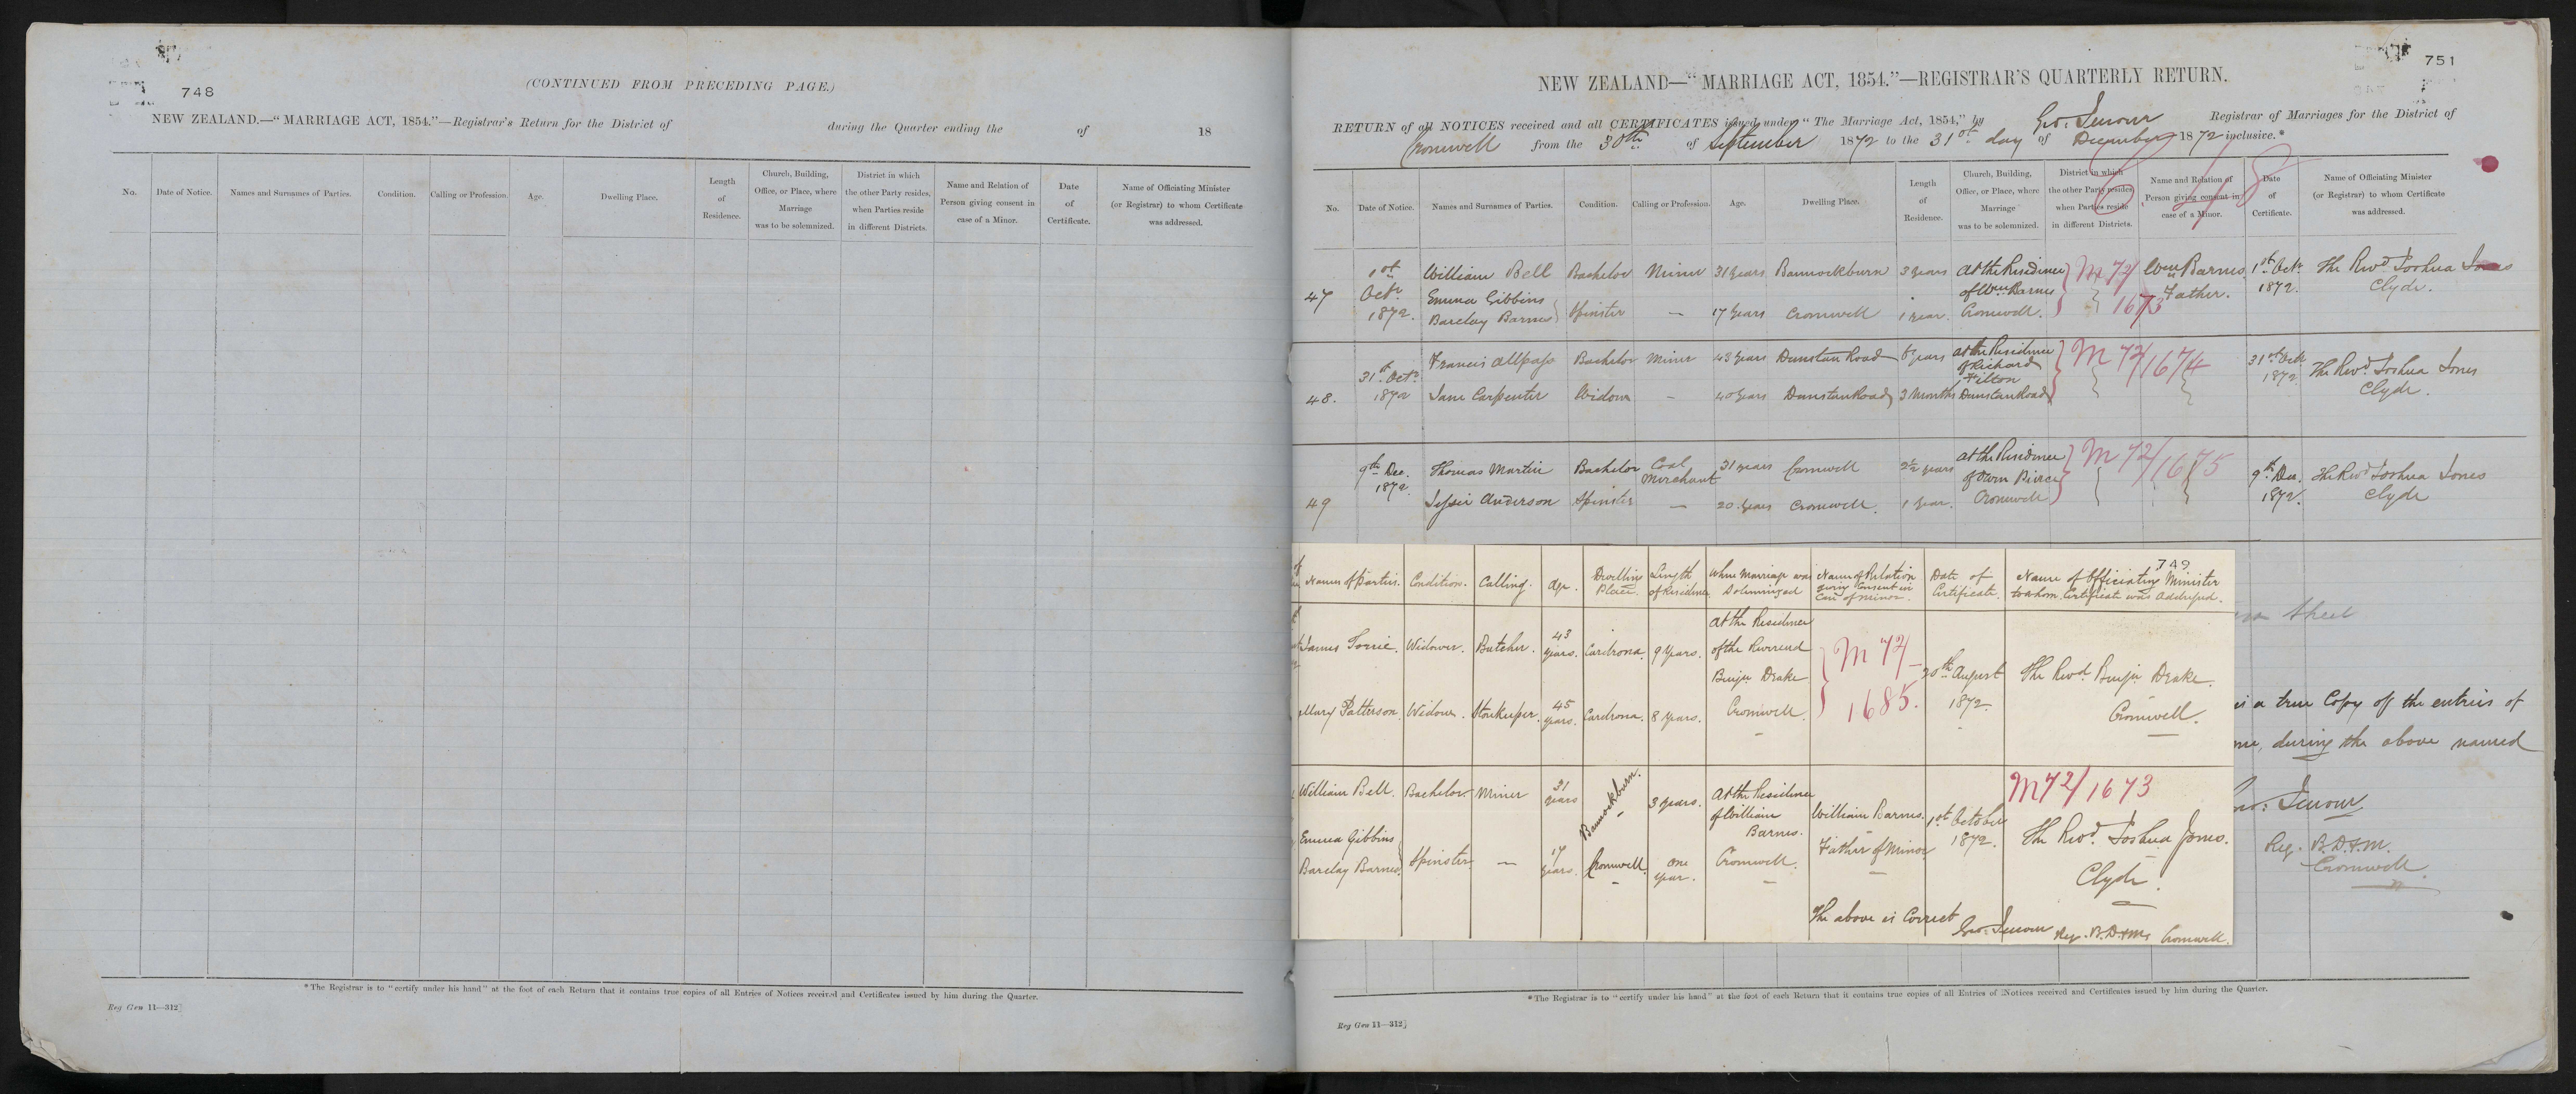 748
(CONTINUED FROM PRECEDING PAGE.)
NEW ZEALAND.—“MARRIAGE ACT, 1854.”—Registrar's Return for the District of during the Quarter ending the of 18
No. Date of Notice. Names and Surnames of Parties. Condition. Calling or Profession. Age. Dwelling Place. Length of Residence. Church, Building, Office, or Place, where Marriage was to be solemnized. District in which the other Party resides, when Parties reside in different Districts. Name and Relation of Person giving consent in case of a Minor. Date of Certificate. Name of Officiating Minister (or Registrar) to whom Certificate was addressed.
*The Registrar is to “certify under his hand” at the foot of each Return that it contains true copies of all Entries of Notices received and Certificates issued by him during the Quarter.
Reg Gen 11—312]
751
NEW ZEALAND—“MARRIAGE ACT, 1854.”—REGISTRAR'S QUARTERLY RETURN.
RETURN of all NOTICES received and all CERTIFICATES issued under “The Marriage Act, 1854,” by Geo: Jenour Registrar of Marriages for the District of
Cromwell from the 30th of September 1872 to the 31st day of December 1872 inclusive.*
No. Date of Notice. Names and Surnames of Parties. Condition. Calling or Profession. Age. Dwelling Place. Length of Residence. Church, Building, Office, or Place, where Marriage was to be solemnized. District in which the other Party resides, when Parties reside in different Districts. Name and Relation of Person giving consent in case of a Minor. Date of Certificate. Name of Officiating Minister (or Registrar) to whom Certificate was addressed.
47 1st Octr 1872. William Bell Bachelor Miner 31 years Bannockburn 3 years At the Residence of Wm Barnes Cromwell. M 72/1673 Wm Barnes Father. 1st Octr 1872. The Revd Joshua Jones Clyde.
Emma Gibbins Barclay Barnes Spinster — 17 years Cromwell 1 year.
48. 31st Octr 1872 Francis Allpass Bachelor Miner 43 years Dunstan Road 8 years At the Residence of Richard Filton Dunstan Road M 72/1674 31st Oct 1872 The Revd Joshua Jones Clyde.
Jane Carpenter Widow — 40 years Dunstan Road 3 Months
49 9th Dec. 1872. Thomas Martin Bachelor Coal Merchant 31 years Cromwell 2½ years At the Residence of Owen Pierce Cromwell M 72/1675 9th Dec. 1872. The Revd Joshua Jones Clyde
Jessie Anderson Spinster — 20 years Cromwell. 1 year.
749
of Names of Parties. Condition. Calling. Age. Dwelling Place. Length of Residence Where Marriage was Solemnized Name of Relation giving Consent in Case of Minor. Date of Certificate. Name of Officiating Minister to whom Certificate was Addressed.
James Lorrie. Widower. Butcher. 43 years. Cardrona. 9 years. At the Residence of the Reverend Benjn Drake Cromwell. M 72/1685. 20th August 1872. The Revd. Benjn Drake. Cromwell.
Mary Patterson. Widow. Storekeeper. 45 years. Cardrona. 8 years.
William Bell. Bachelor. Miner 31 years Bannockburn. 3 years. At the Residence of William Barnes. Cromwell. William Barnes. Father of Minor 1st October 1872. M72/1673 The Revd. Joshua Jones. Clyde.
Emma Gibbins Barclay Barnes. Spinster — 17 years. Cromwell. One year.
The above is Correct Geo: Jenour Reg. B.D.&M. Cromwell.
sheet
is a true Copy of the entries of
me, during the above named
Geo: Jenour
Reg. B.D.&M.
Cromwell.
*The Registrar is to “certify under his hand” at the foot of each Return that it contains true copies of all Entries of Notices received and Certificates issued by him during the Quarter.
Reg Gen 11—312]